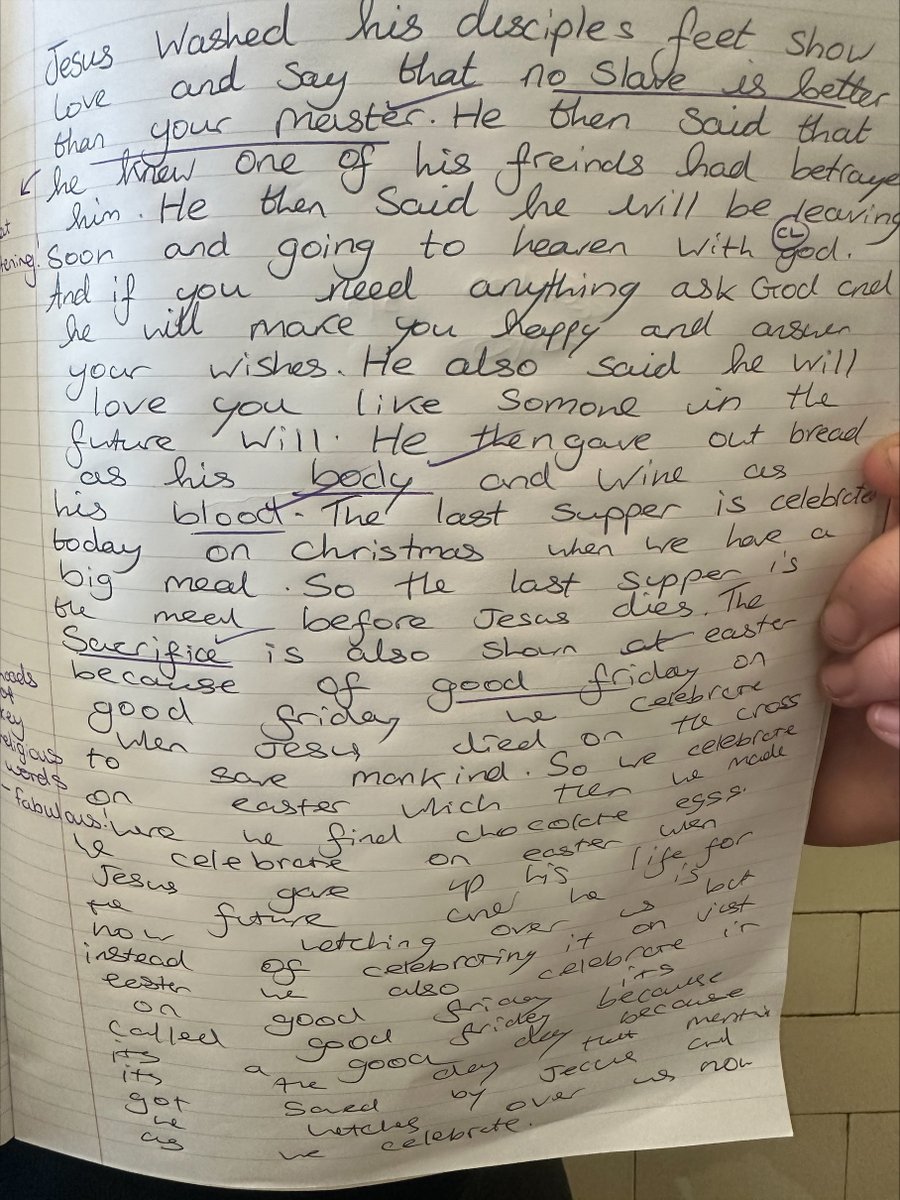 Jesus Washed his disciples feet show
love and say that no slave is better
than your meister. He then said that
he knew one of his freinds had betraye
him. He then said he will be leaving
tening!
CL
soon and going to heaven with god.
And if you need anything ask God and
he will make you happy and answer
your wishes. He also said he will
love you like Somone in the
future will. He then gave out bread
as his body and wine as
his blood. The last supper is celebrate
today on christmas when we have a
big meal. So the last supper is
the meal before Jesus dies. The
Sacrifice is also shown at easter
because of good friday on
good friday we celebrate
when Jesus died on the cross
to save mankind. So we celebrate
on easter which then we made
were we find chocolate eggs.
we celebrate on easter when
Jesus gave up his life for
the future and he is
now wetching over us but
instead of celebrating it on just
easter we also celebrate it
on good friday because its
called good friday because
its a good day
its the day that
got saved by Jesus and
he wetches over us now
as we celebrate.
loads
of
key
religious
words
- fabulous!